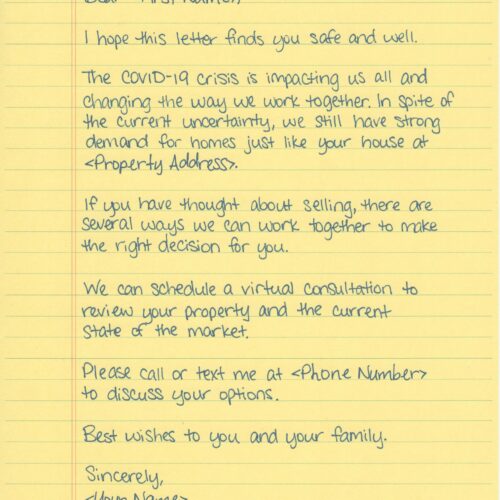 Dear <First Name>,
I hope this letter finds you safe and well.
The COVID-19 crisis is impacting us all and
changing the way we work together. In spite of
the current uncertainty, we still have strong
demand for homes just like your house at
<Property Address>.
If you have thought about selling, there are
several ways we can work together to make
the right decision for you.
We can schedule a virtual consultation to
review your property and the current
state of the market.
Please call or text me at <Phone Number>
to discuss your options.
Best wishes to you and your family.
Sincerely,
<Your Name>